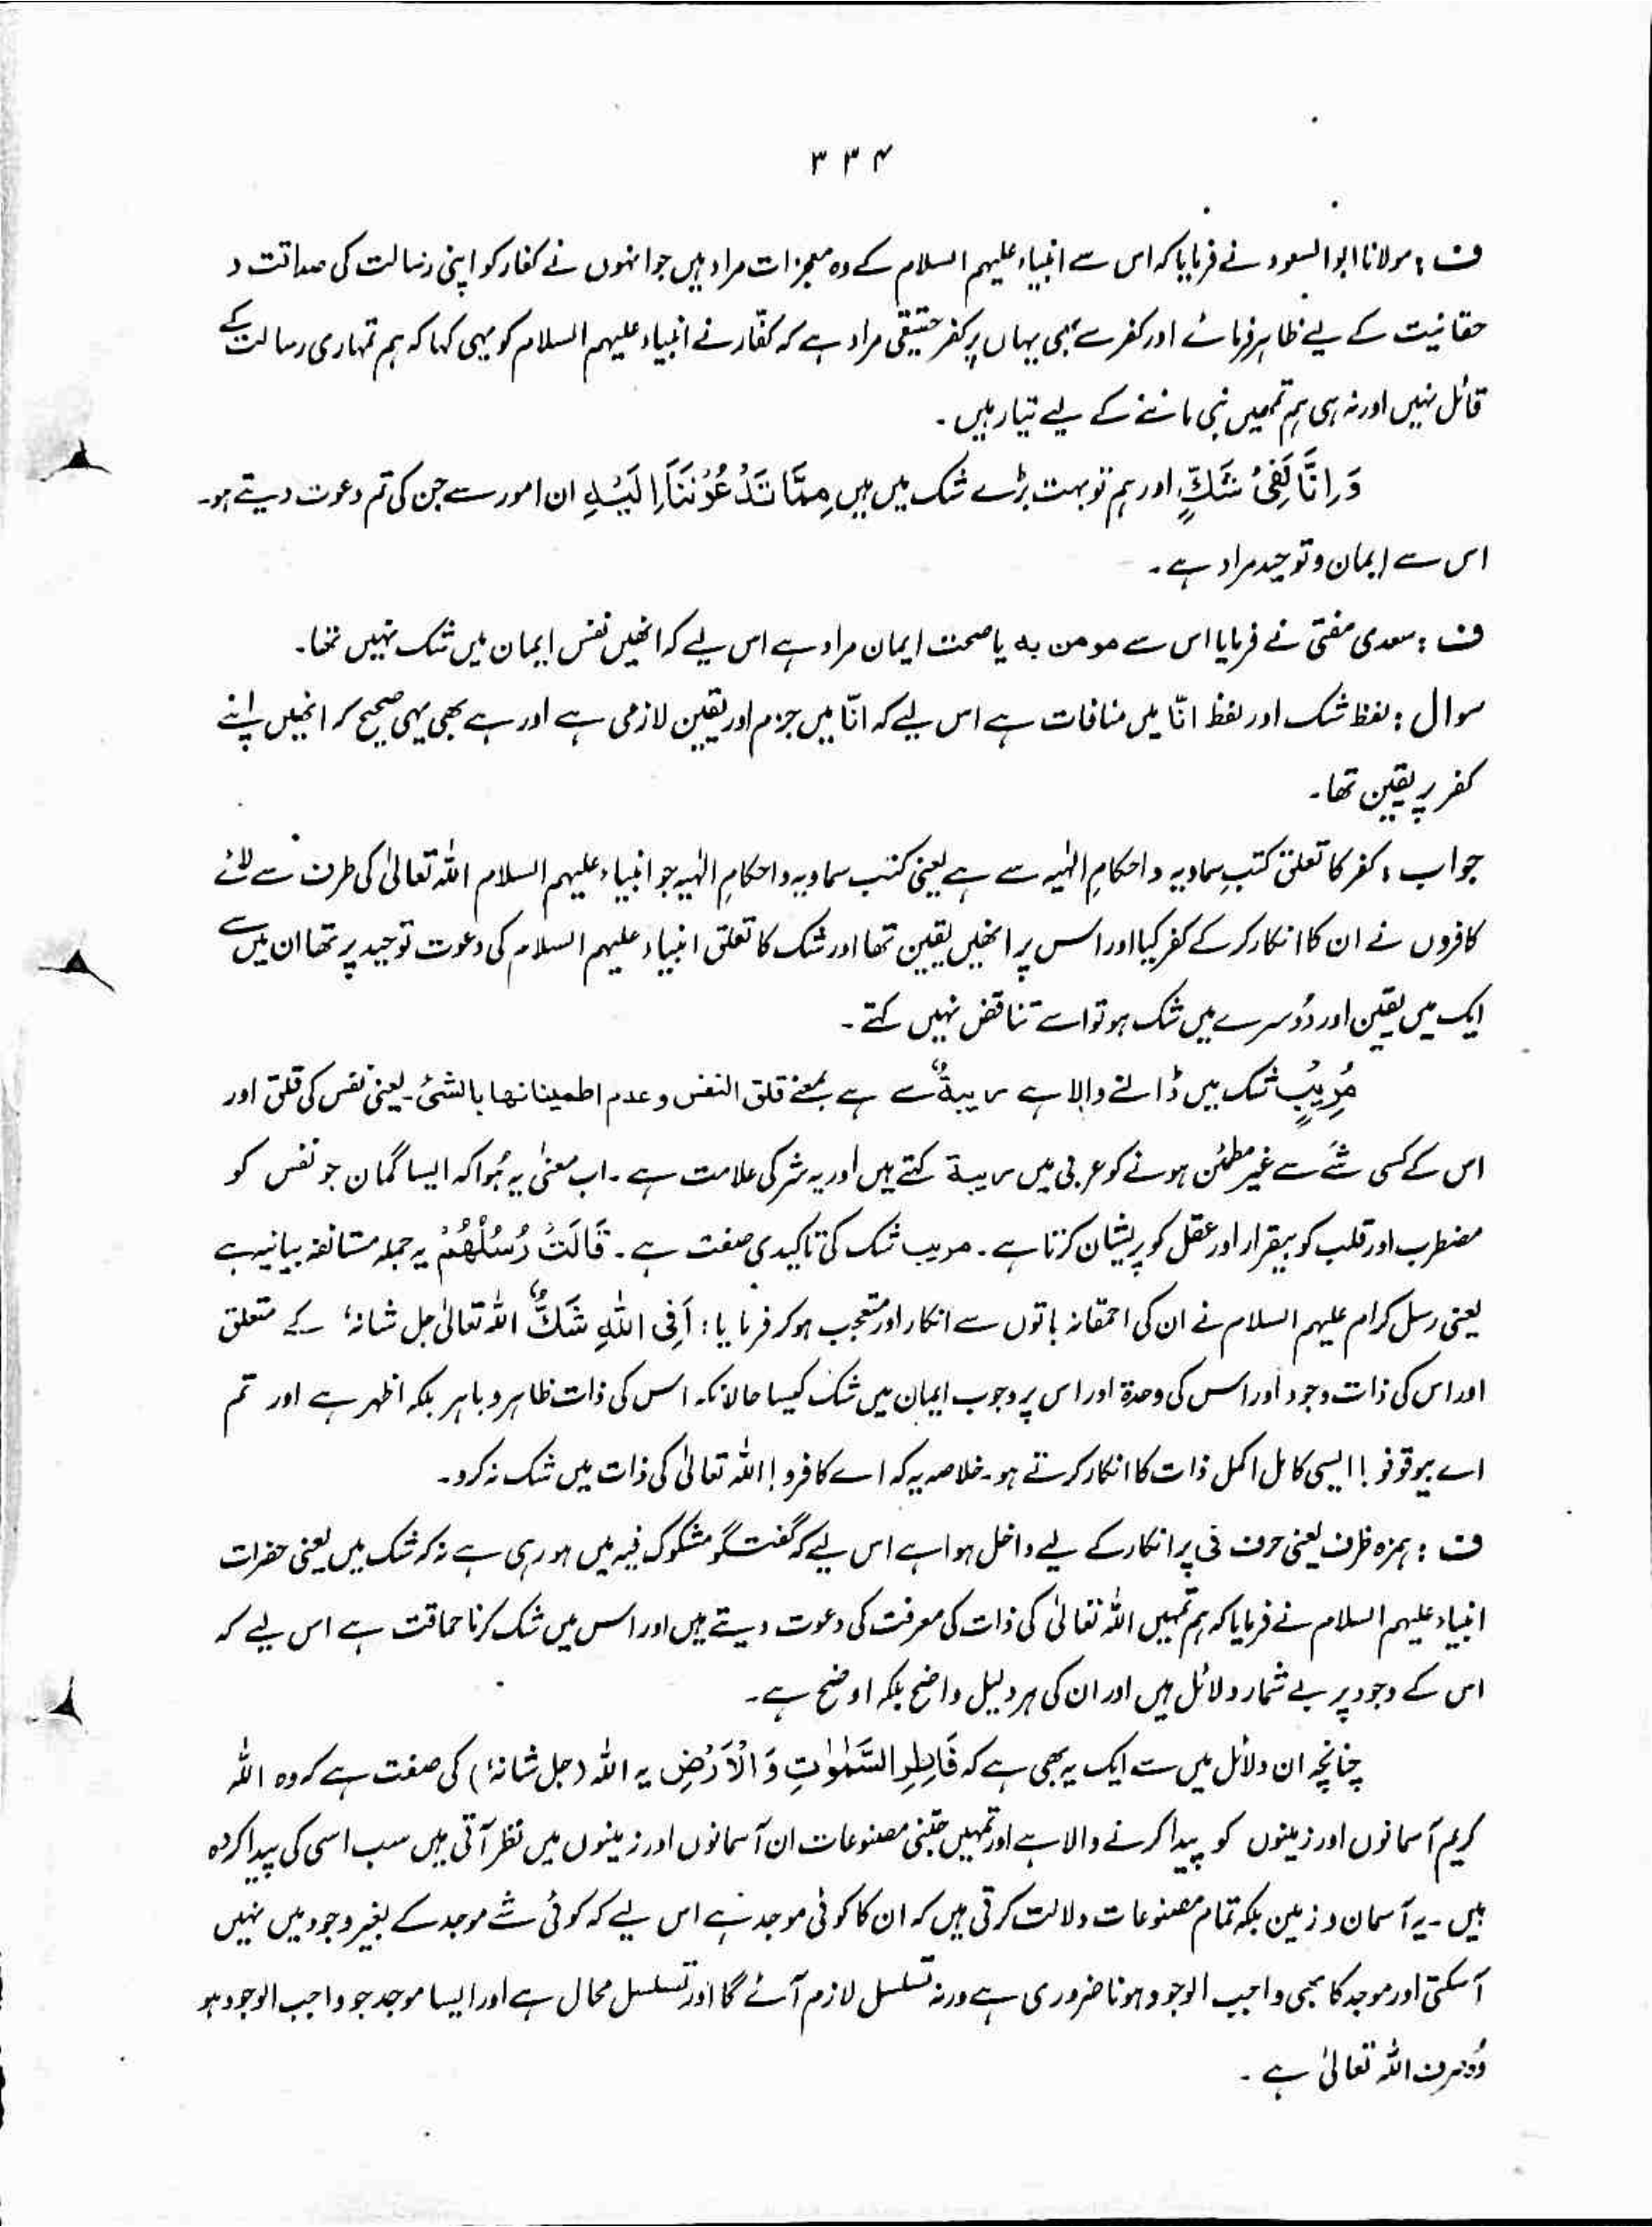 ۳۳۴
ف : مولانا ابوالسعود نے فرمایا کہ اس سے انبیاء علیہم السلام کے وہ معجزات مراد ہیں جو انہوں نے کفار کو اپنی رسالت کی صداقت و
حقانیت کے لیے ظاہر فرمائے اور کفر سے بھی یہاں پر کفر حقیقی مراد ہے کہ کفّار نے انبیاء علیہم السلام کو یہی کہا کہ ہم تمہاری رسالت کے
قائل نہیں اور نہ ہی ہم تمھیں نبی ماننے کے لیے تیار ہیں ۔
وَ اِنَّا لَفِیْ شَكٍّ اور ہم تو بہت بڑے شک میں ہیں مِمَّا تَدْعُوْنَنَآ اِلَیْهِ ان امور سے جن کی تم دعوت دیتے ہو۔
اس سے ایمان و توحید مراد ہے ۔
ف : سعدی مفتی نے فرمایا اس سے مومن به یا صحت ایمان مراد ہے اس لیے کہ انھیں نفس ایمان میں شک نہیں تھا۔
سوال : لفظ شک اور لفظ انّا میں منافات ہے اس لیے کہ انّا میں جزم اور یقین لازمی ہے اور ہے بھی یہی صحیح کہ انھیں اپنے
کفر پر یقین تھا۔
جواب : کفر کا تعلق کتبِ سماویہ و احکامِ الٰہیہ سے ہے یعنی کتب سماویہ و احکامِ الٰہیہ جو انبیاء علیہم السلام اللہ تعالیٰ کی طرف سے لائے
کافروں نے ان کا انکار کر کے کفر کیا اور اس پر انھیں یقین تھا اور شک کا تعلق انبیاء علیہم السلام کی دعوت توحید پر تھا ان میں سے
ایک میں یقین اور دُوسرے میں شک ہو تو اسے تناقض نہیں کہتے ۔
مُرِیْبٍ شک میں ڈالنے والا ہے ریبةٌ سے ہے بمعنے قلق النفس و عدم اطمینانها بالشئ۔ یعنی نفس کی قلق اور
اس کے کسی شے سے غیر مطمئن ہونے کو عربی میں ریبة کہتے ہیں اور یہ شر کی علامت ہے ۔ اب معنیٰ یہ ہُوا کہ ایسا گمان جو نفس کو
مضطرب اور قلب کو بیقرار اور عقل کو پریشان کرتا ہے ۔ مریب شک کی تاکیدی صفت ہے ۔ قَالَتْ رُسُلُهُمْ یہ جملہ مستانفہ بیانیہ ہے
یعنی رسل کرام علیہم السلام نے ان کی احمقانہ باتوں سے انکار اور متعجب ہو کر فرمایا : اَفِی اللّٰهِ شَكٌّ اللہ تعالیٰ جل شانہٗ کے متعلق
اور اس کی ذات وجود اور اس کی وحدۃ اور اس پر وجوب ایمان میں شک کیسا حالانکہ اس کی ذات ظاہر و باہر بلکہ اظہر ہے اور تم
اے بیوقوفو ! ایسی کامل اکمل ذات کا انکار کرتے ہو۔ خلاصہ یہ کہ اے کافرو ! اللہ تعالیٰ کی ذات میں شک نہ کرو۔
ف : ہمزہ ظرف یعنی حرف فی پر انکار کے لیے داخل ہوا ہے اس لیے کہ گفتگو مشکوک فیہ میں ہو رہی ہے نہ کہ شک میں یعنی حضرات
انبیاء علیہم السلام نے فرمایا کہ ہم تمہیں اللہ تعالیٰ کی ذات کی معرفت کی دعوت دیتے ہیں اور اس میں شک کرنا حماقت ہے اس لیے کہ
اس کے وجود پر بے شمار دلائل ہیں اور ان کی ہر دلیل واضح بلکہ اوضح ہے۔
چنانچہ ان دلائل میں سے ایک یہ بھی ہے کہ فَاطِرِ السَّمٰوٰتِ وَ الْاَرْضِ یہ اللہ (جل شانہٗ) کی صفت ہے کہ وہ اللہ
کریم آسمانوں اور زمینوں کو پیدا کرنے والا ہے اور تمہیں جتنی مصنوعات ان آسمانوں اور زمینوں میں نظر آتی ہیں سب اسی کی پیدا کردہ
ہیں ۔ یہ آسمان و زمین بلکہ تمام مصنوعات دلالت کرتی ہیں کہ ان کا کوئی موجد ہے اس لیے کہ کوئی شے موجد کے بغیر وجود میں نہیں
آسکتی اور موجد کا بھی واجب الوجود ہونا ضروری ہے ورنہ تسلسل لازم آئے گا اور تسلسل محال ہے اور ایسا موجد جو واجب الوجود ہو
وُہ صرف اللہ تعالیٰ ہے ۔